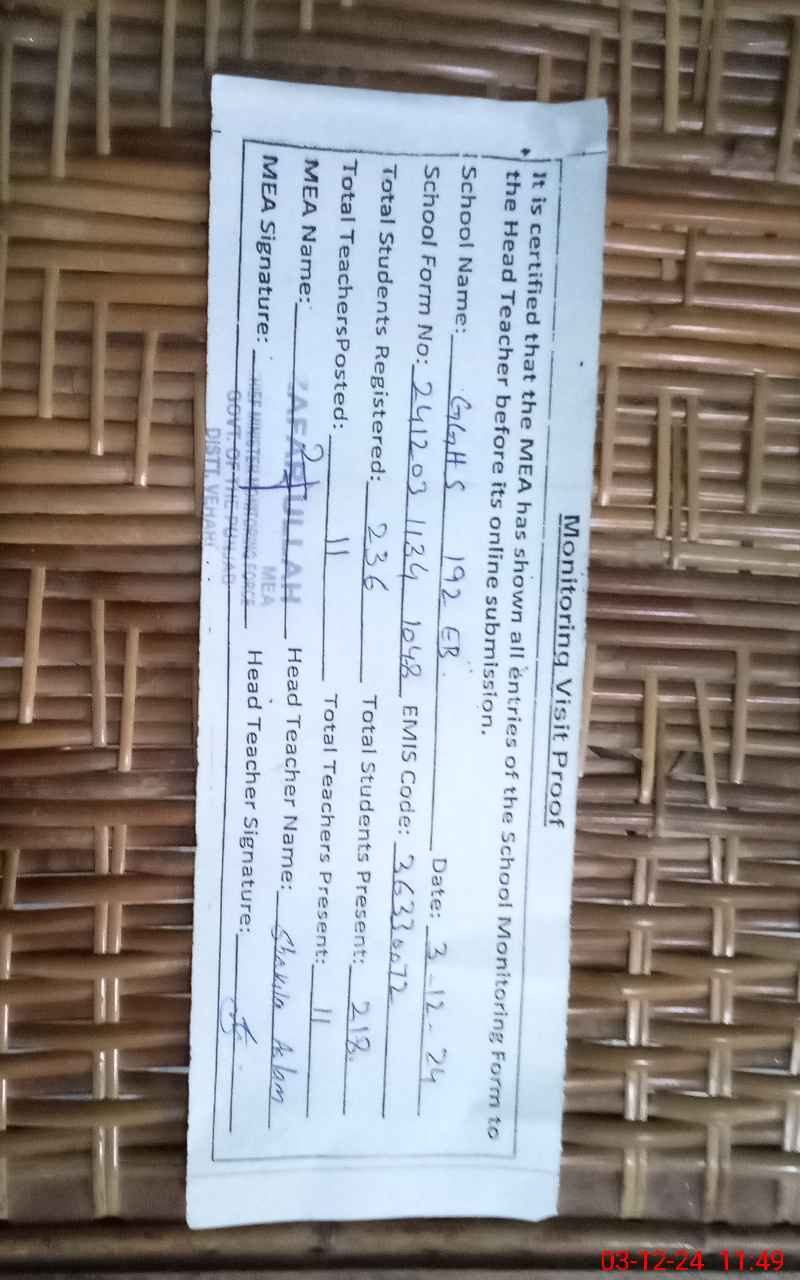 Monitoring Visit Proof
It is certified that the MEA has shown all entries of the School Monitoring Form to
the Head Teacher before its online submission.
School Name: GGHS 192 EB Date: 3-12-24
School Form No: 241203 1134 1048 EMIS Code: 36330072
Total Students Registered: 236 Total Students Present: 218
Total TeachersPosted: 11 Total Teachers Present: 11
MEA Name: ZAFAR ULLAH Head Teacher Name: Shakila Aslam
MEA
MEA Signature: Head Teacher Signature:
CHIEF MINISTER MONITORING FORCE
GOVT. OF THE PUNJAB
DISTT. VEHARI
03-12-24 11:49